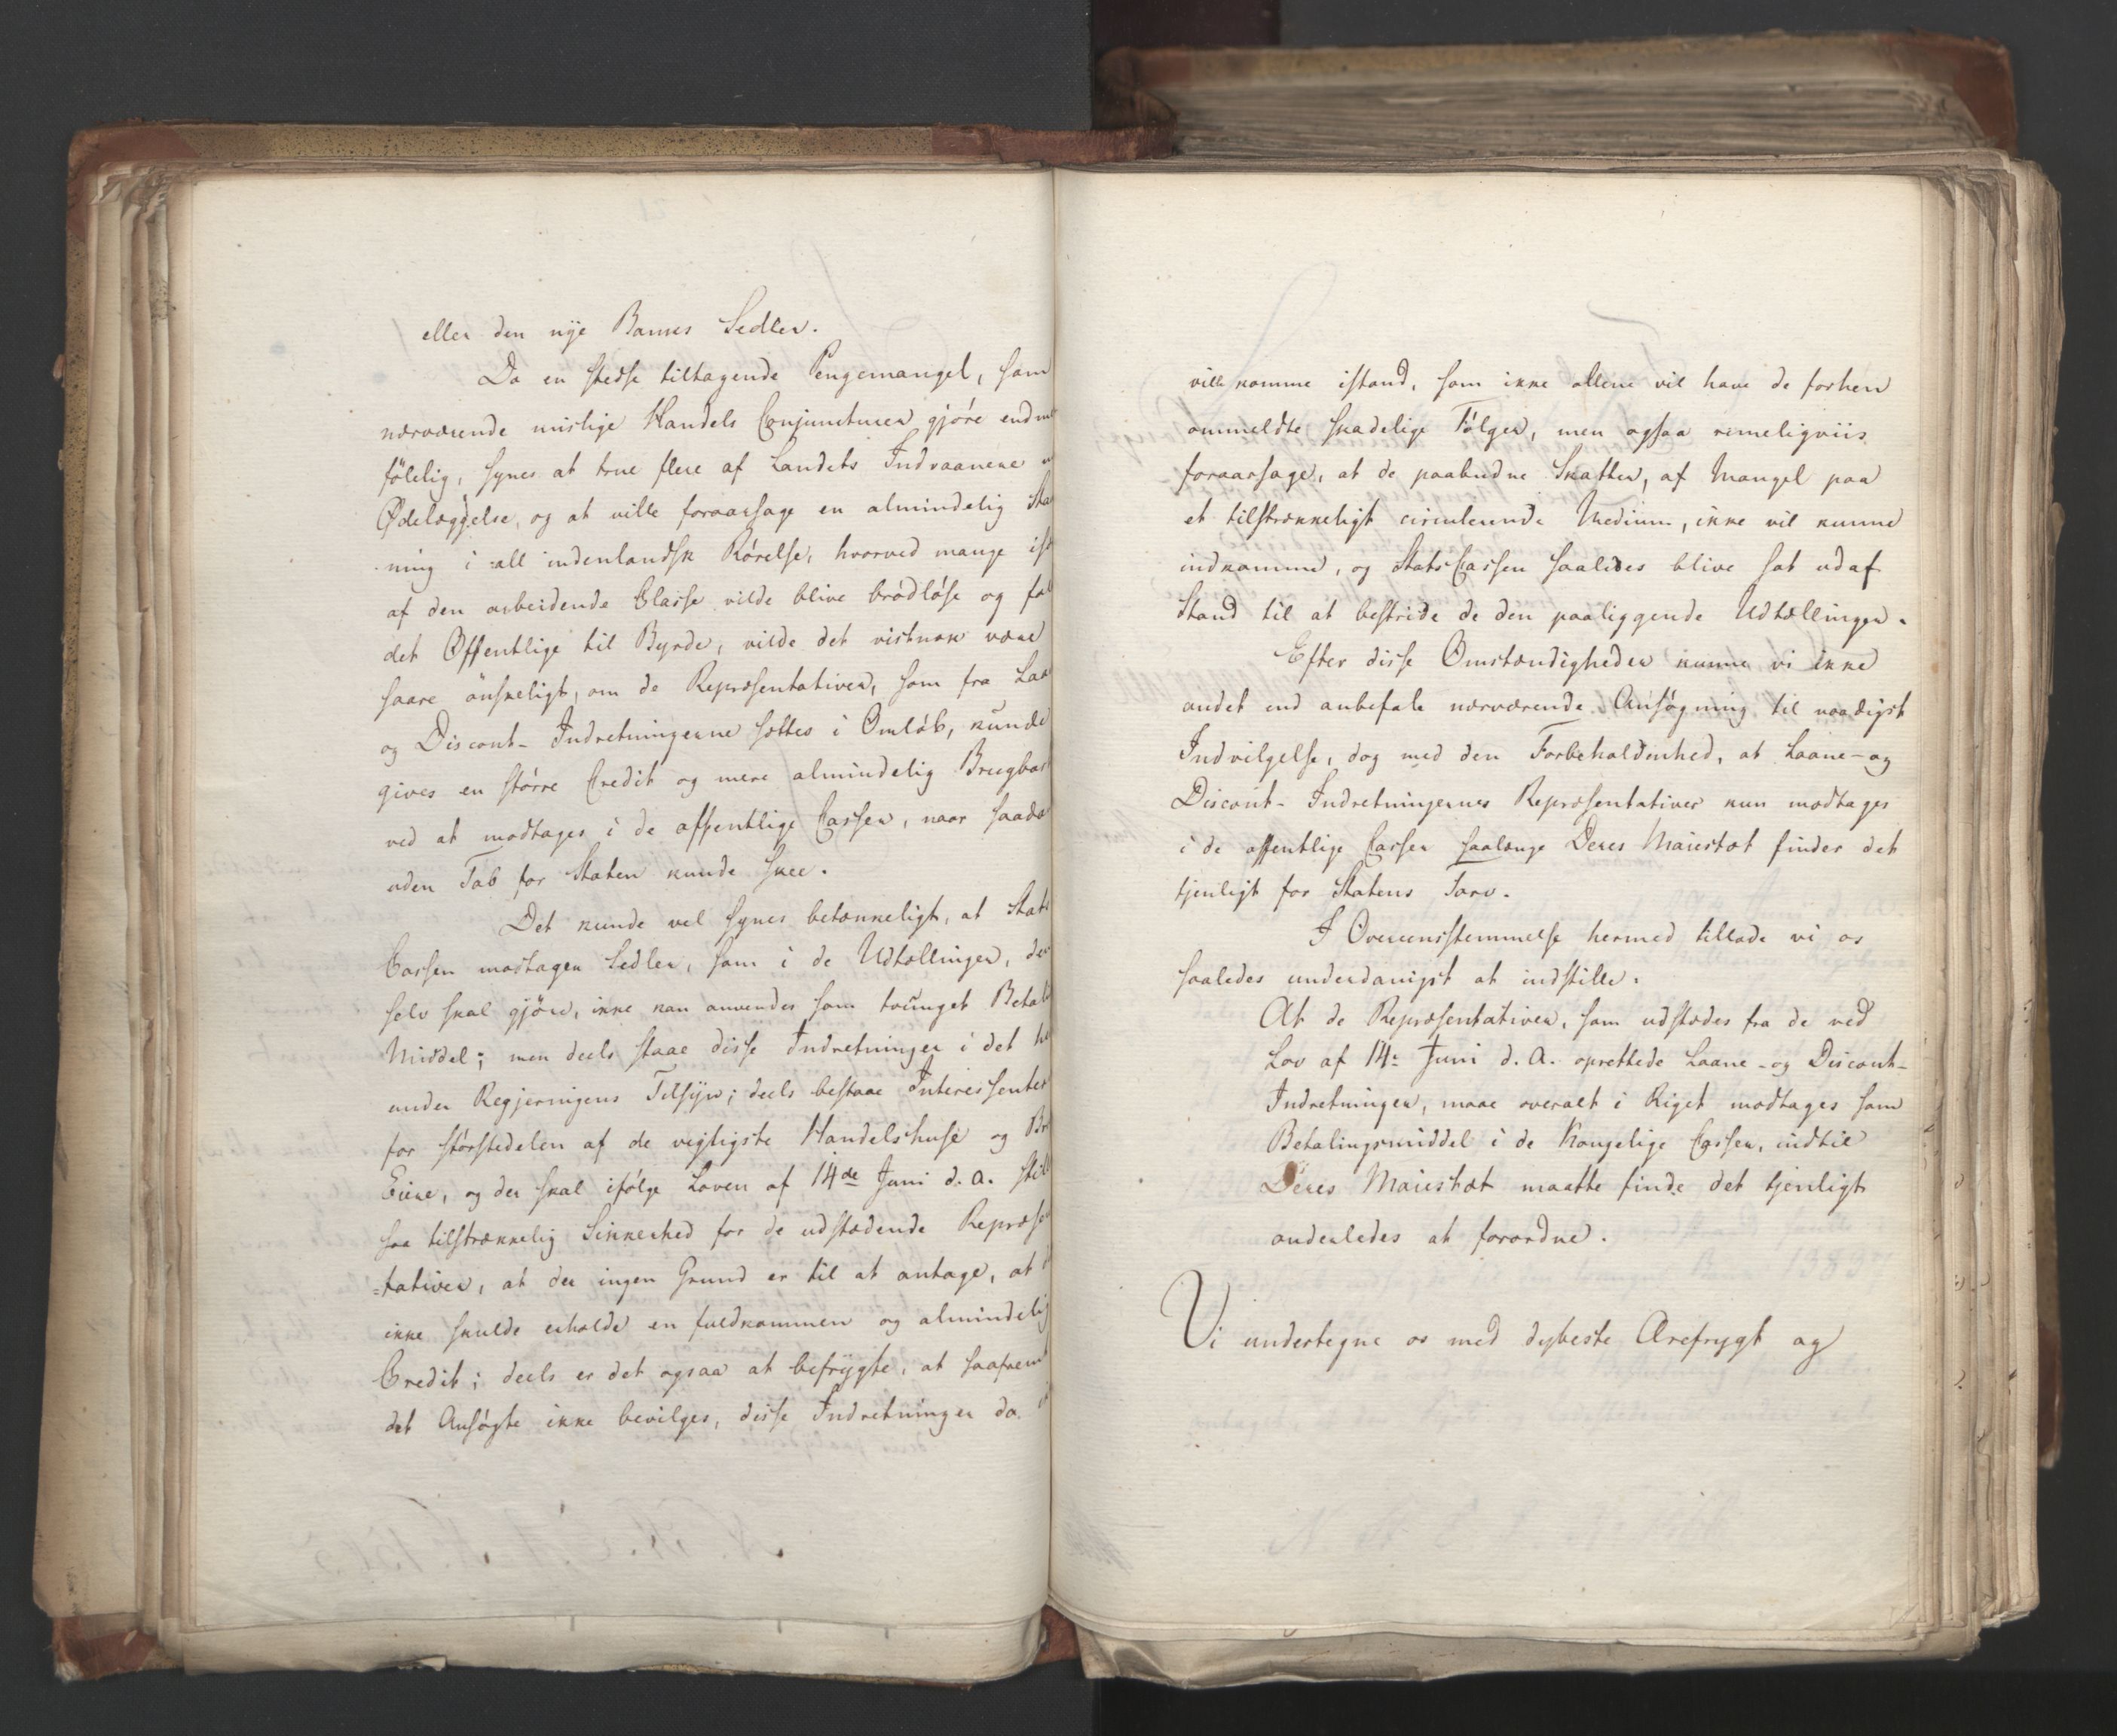 eller den nye Banks Sedler.
Da en stedse tiltagende Pengemangel, som
nærværende mislige Handels Conjuncturer gjöre endnu
fölelig, synes at true flere af Landets Indvaanere
Ødelæggelse, og at ville foraarsage en almindelig Sta
ning i all indenlandsk Rörelse, hvorved mange
af den arbeidende Classe vilde blive brödlöse og fal
det Offentlige til Byrde, vilde det vistnok være
saare önskeligt, om de Repræsentativer, som fra Laa
og Discont-Indretningerne sættes i Omlöb, kunde
gives en större Credit og mere almindelig Brugbar
ved at modtages i de offentlige Casser, naar saada
uden Tab for Staten kunde skee.
Det kunde vel synes betænkeligt, at Stats
Cassen modtager Sedler, som i de Udtællinger, den
selv skal gjöre, ikke kan anvendes som tvunget Betal
Middel; men deels staae disse Indretninger i det he
under Regjeringens Tilsyn; deels bestaae Interessenter
for störstedelen af de vigtigste Handelshuse og Br
Eiere, og der skal ifölge Loven af 14de Juni d. A. still
saa tilstrækkelig Sikkerhed for de udstædende Repræsen
-tativer, at der ingen Grund er til at antage, at
ikke skulde erholde en fuldkommen og almindelig
Credit; deels er det ogsaa at befrygte, at saafremt
det Ansögte ikke bevilges, disse Indretninger da
ville komme istand, som ikke allene vil have de forhen
ommeldte skadelige Fölger, men ogsaa rimeligviis
foraarsage, at de paabudne Skatter, af Mangel paa
et tilstrækkeligt circulerende Medium, ikke vil kunne
indkomme, og StatsCassen saaledes blive sat udaf
Stand til at bestride de den paaliggende Udtællinger.
Efter disse Omstændigheder kunne vi ikke
andet end anbefale nærværende Ansögning til naadigst
Indvilgelse, dog med den Forbeholdenhed, at Laane- og
Discont-Indretningernes Repræsentativer kun modtages
i de offentlige Casser saalænge Deres Maiestæt finder det
tjenligt for Statens Tarv.
I Overeensstemmelse hermed tillade vi os
saaledes underdanigst at indstille:
At de Repræsentativer, som udstædes fra de ved
Lov af 14: Juni d. A. oprettede Laane- og Discont-
Indretninger, maae overalt i Riget modtages som
Betalingsmiddel i de Kongelige Casser, indtil
Deres Maiestæt maatte finde det tjenligt
anderledes at forordne.
Vi undertegne os med dybeste Ærefrygt og